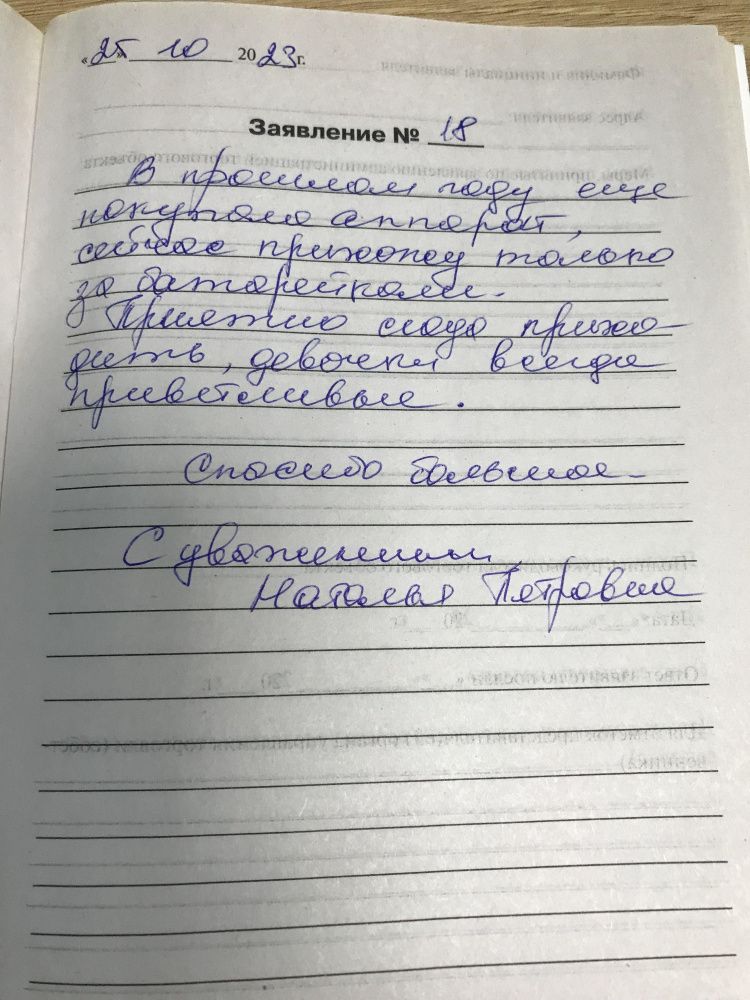 «25» 10 2023г.
Заявление № 18
В прошлом году еще
покупала аппарат,
сейчас прихожу только
за батарейками.
Приятно сюда прихо-
дить, девочки всегда
приветливые.
Спасибо большое.
С уважением
Наталья Петровна